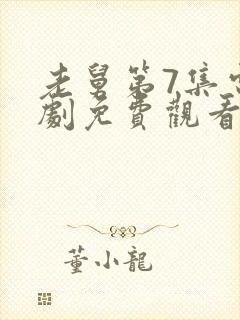 老舅第7集電
劇免費觀看
董小龍